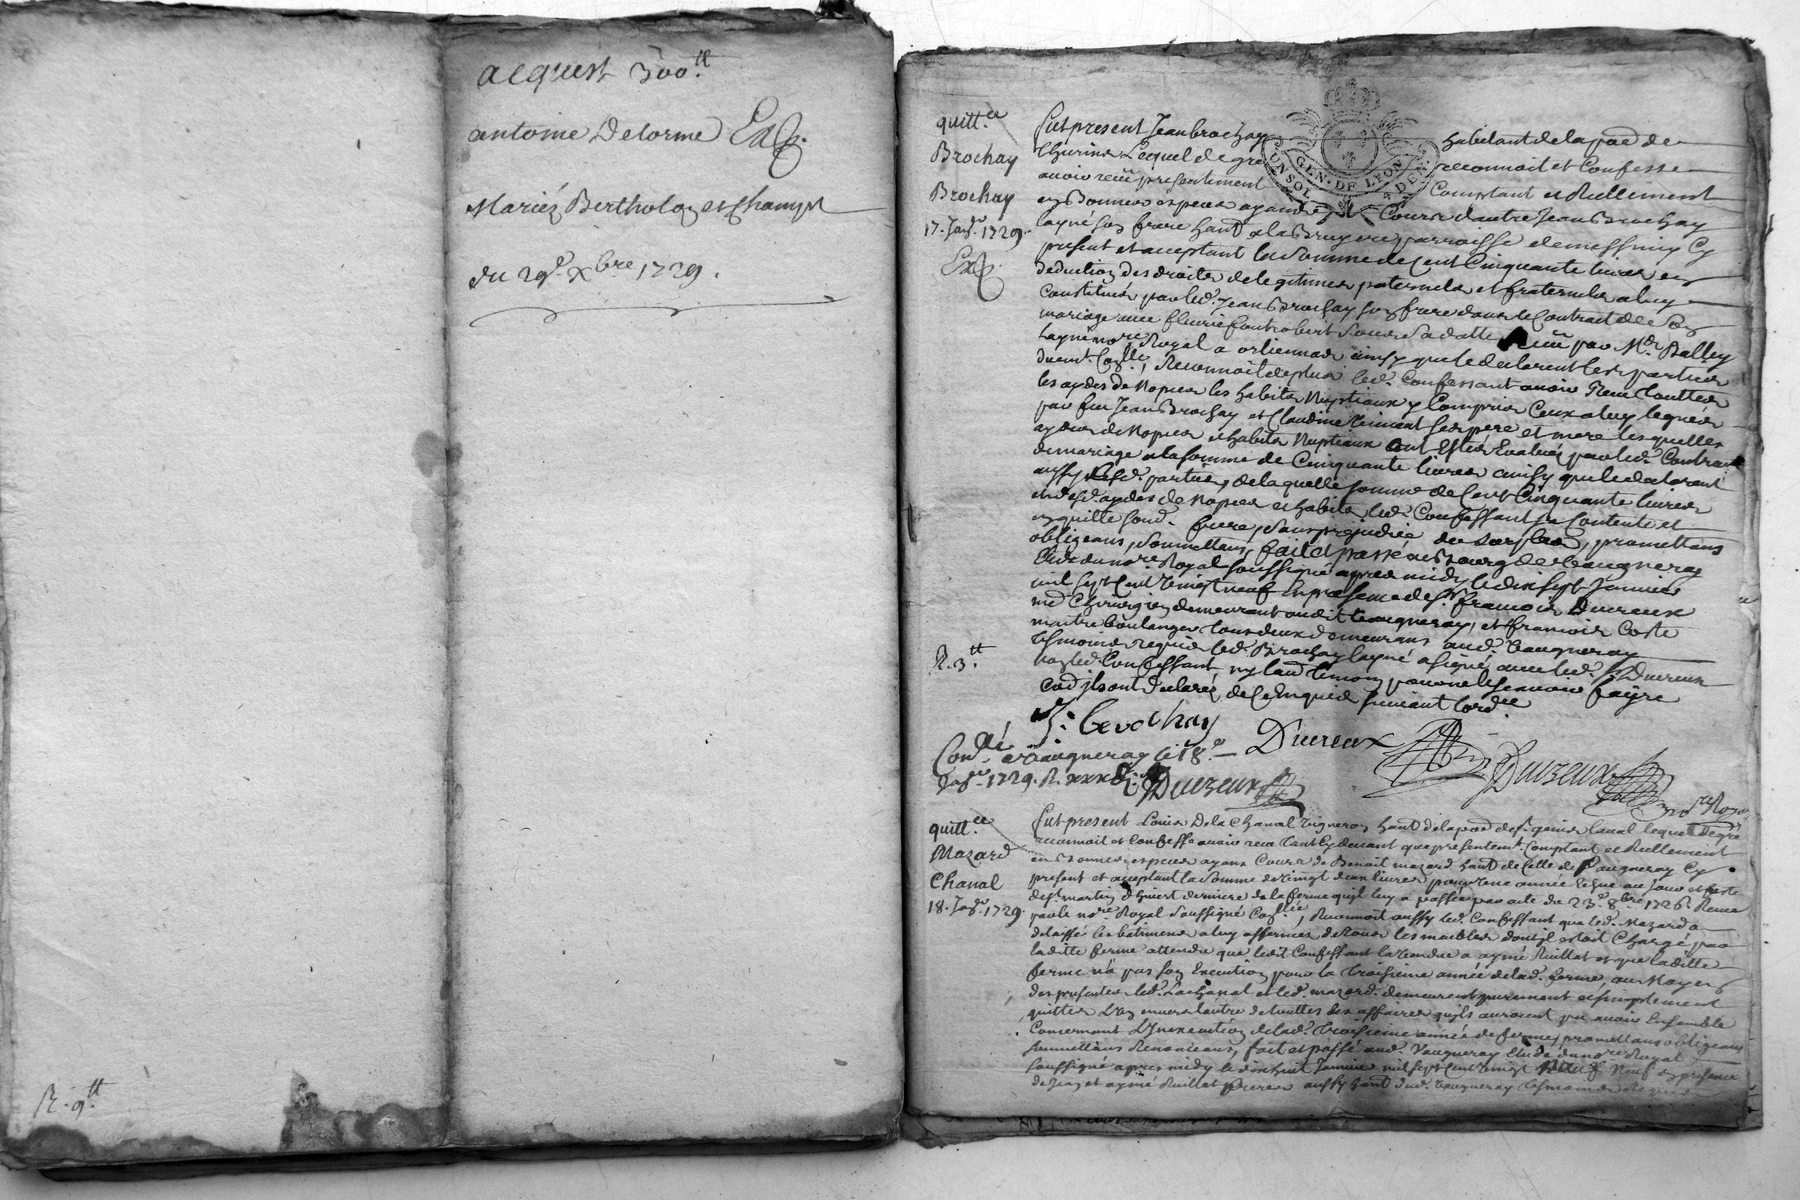 acquest 300.tt
antoine Delorme Exp.
Mariéz Bertholon et Champt
du 29e. xbre 1729.
R. 9.tt
quitt.ce
Brochay
Brochay
17. Janr. 1729.
Exp.
GEN. DE LYON
Fut present Jean brochay habitant de la pad de
Thurins Lequel de gré reconnait et Confesse
avoir reçu presentement Comptant et Reellement
en Bonnes especes ayant Cours d'autre Jean Brochay
layné son frere habt a la Bruyere parroisse de messimy Cy
present et aceptant la Somme de Cent Cinquante livres en
deduction des droits de legitimes paternels et fraternels a luy
Constitués par led. Jean Brochay son frere dans le Contrait de Son
mariage avec fleurie fontrobert Sous Sa datte Reçu par Me. Balley
Layné nore Royal a orliennas ainsy que le declarent les parties
Reconnait de plus led. Confessant avoir Reçu touttes
les aydes de Nopces les habits Nuptiaux y Compris Ceux a luy legués
par feu Jean Brochay et Claudine ses pere et mere lesquelles
aydes de Nopces et habits Nuptiaux ont Estés Evalués par led. Contrat
de mariage a la somme de Cinquante livres ainsy que le declarent
aussy lesd. parties, de laquelle somme de Cent Cinquante livres
et desd. aydes de Nopces et habits led. Confessant se Contente et
en quitte sond. frere, sans prejudice du surplus, promettans
obligeans, soumettans, fait et passé au Bourg de Vaugneray
Etude du nore Royal soussigné apres midy le dix sept Janvier
mil sept Cent vingt neuf En presence de sr. francois Ducreux
me Chirurgien demeurant audit Vaugneray, et francois Coste
maitre boulanger tous deux demeurans aud. Vaugneray
tesmoins requis led. Brochay layné a signé avec led. sr. Ducreux
non led. Confessant ny l'aud. temoin pour ne le scavoir fayre
ainsy ils ont declarés de Ce Enquis suivant lord.ce
R. 3.tt
J. brochay
Ducreux
Conlé. a Vaugneray le 18e.
Janr. 1729. R.
Duvreux
Duvreux
nore Royal
quitt.ce
Mazard
Chanal
18. Janr. 1729.
Fut present Louis Dela Chanal Vigneron habt de la pad de st. genis laval lequel De gré
reconnait et Confesse avoir reçu tant Cy devant que presentemt. Comptant et Reellement
en Bonnes especes ayans Cours de Benoit mazard habt de Celle de Vaugneray Cy
present et aceptant la Somme de vingt deux livres pour une année Echue au Jour et feste
de st. martin d'hivert derniere de la ferme quil luy a passée par acte du 23e. 8bre 1726. Reçu
par le nore Royal Soussigné, Reconnoit aussy led. Confessant que led. Mazard a
delaissé les batimens a luy affermes de tous les meubles dont il etoit Chargé par
ladite ferme attendu que ledit Confessant la vendue a aymé Ruillat et que ladite
ferme n'a pas son Execution pour la troisieme année de lad. ferme, au Moyen
des presentes led. Lachanal et led. mazard. demeurent purement et simplement
quittes l'un envers l'autre de touttes les affaires qu'ils auroient pu avoir Ensemble
Concernant L'Inexecution de lad. troisieme année de ferme, promettans obligeans
soumettans Renonceans, fait et passé aud. Vaugneray Etude du nore Royal
soussigné apres midy le dix huit Janvier mil sept Cent vingt Neuf En presence
de Jean et aymé Ruillat freres aussy habt dud. Vaugneray tesmoins Requis